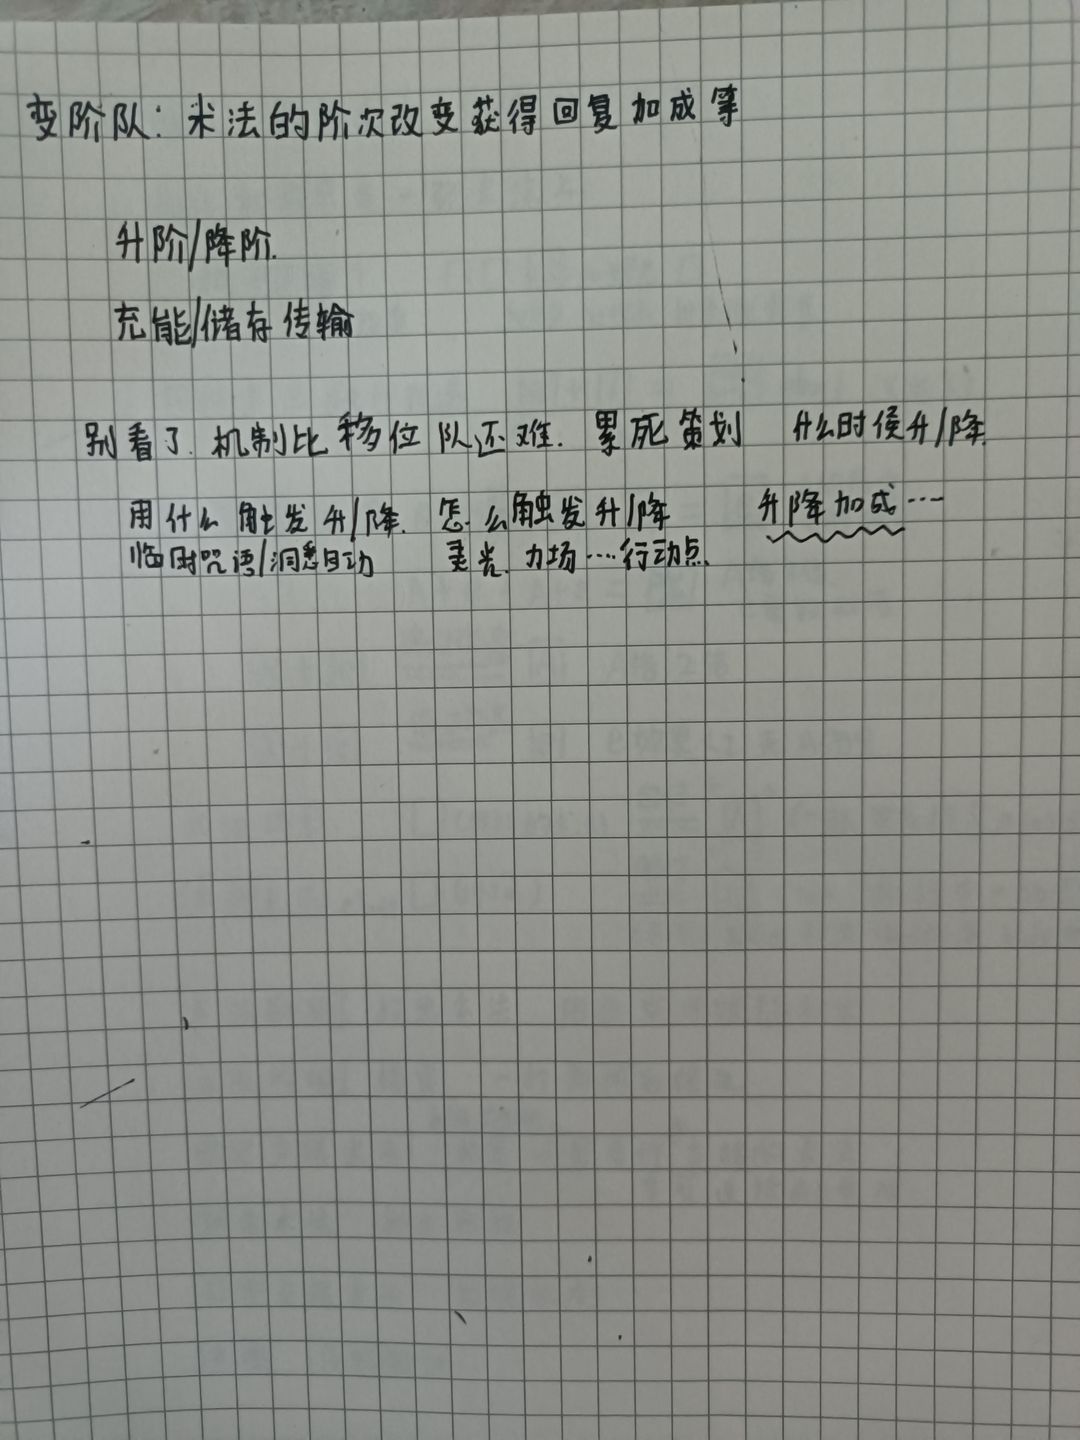 变阶队：术法的阶次改变获得回复加成等
升阶/降阶.
充能/储存传输
别看了.机制比移位队还难.累死策划 什么时候升/降.
用什么触发升/降. 怎么触发升/降 升降加成…
临时咒语/洞悉自动 灵光.力场…行动点.